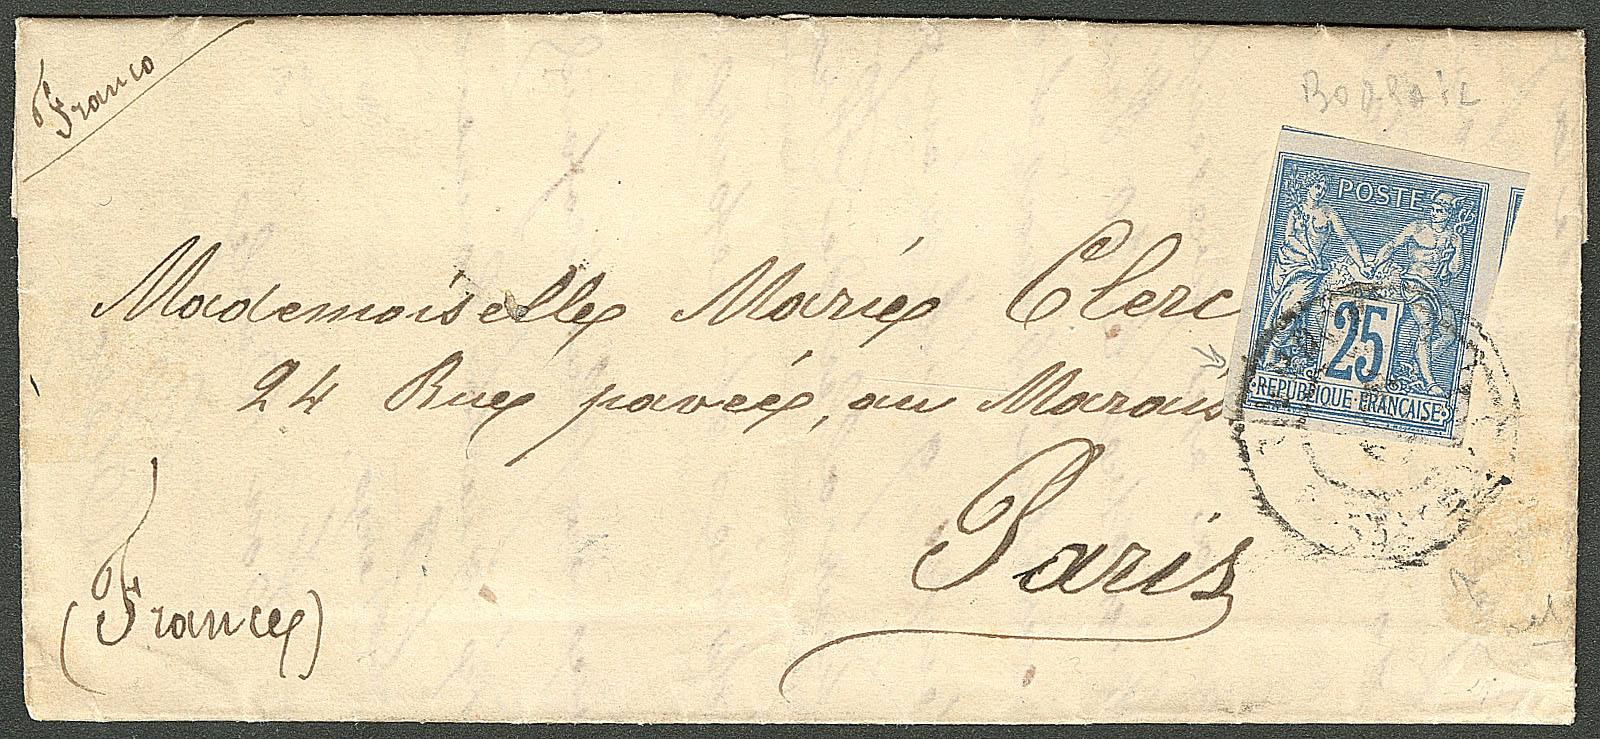 Franco
Mademoiselle Marie Clerc
24 Rue pavée, au Marais
Paris
(France)
POSTE
25
REPUBLIQUE FRANÇAISE